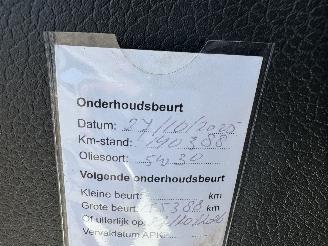 Onderhoudsbeurt
Datum: 27/10/2025
Km-stand: 190388
Oliesoort: 5w30
Volgende onderhoudsbeurt
Kleine beurt: km
Grote beurt: km
Of uiterlijk op
Vervaldatum APK: